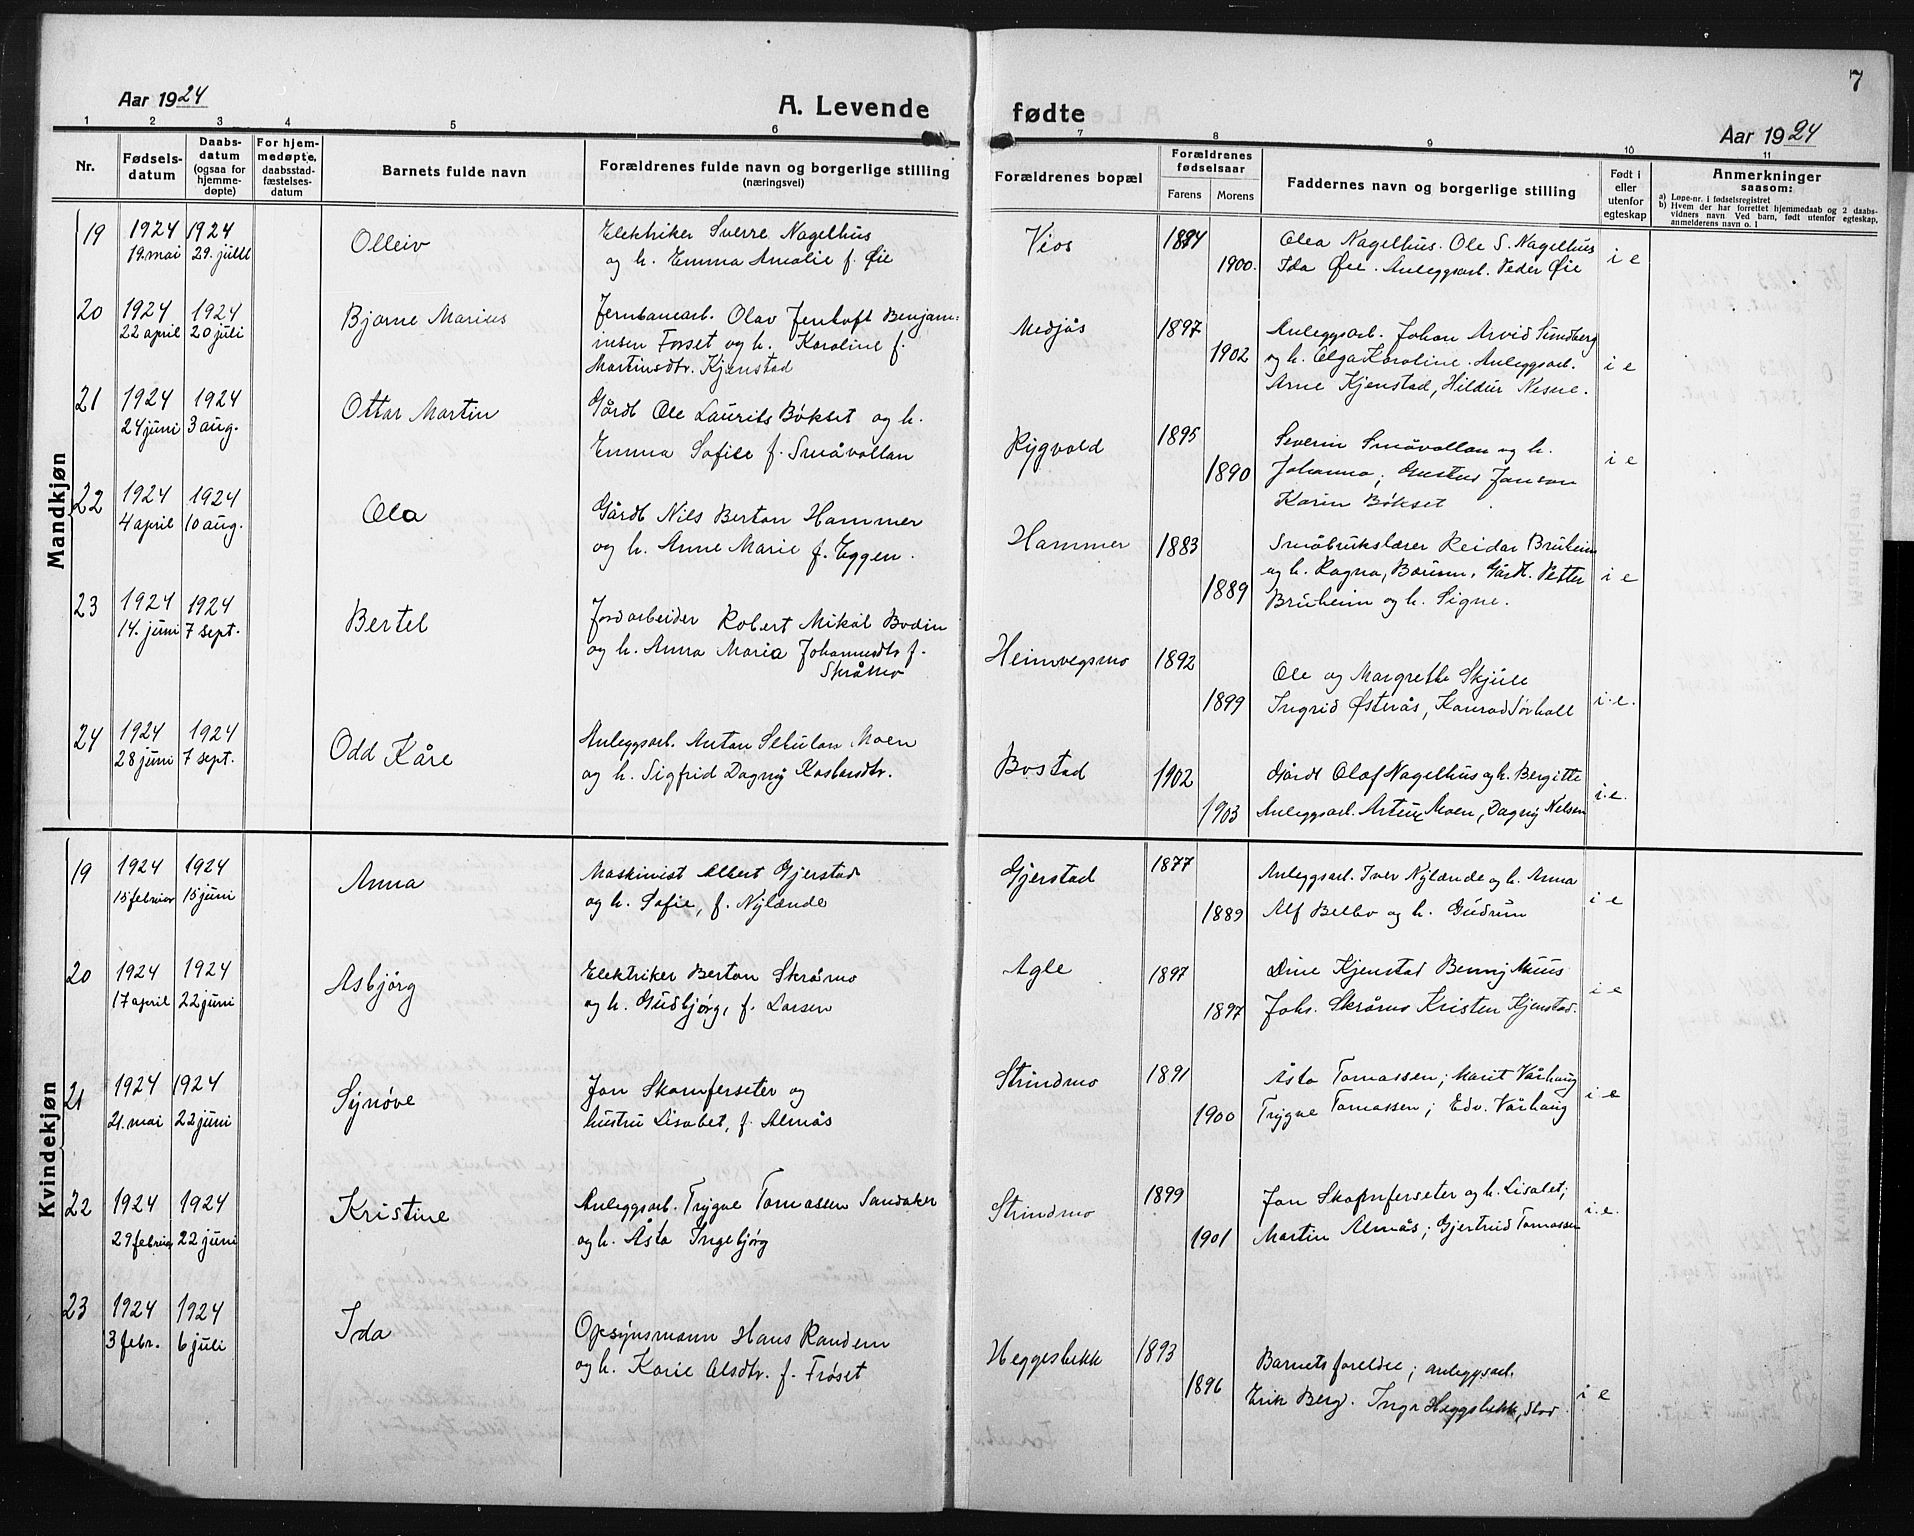 7
Aar 1924
A. Levende
fødte
Aar 1924
1 2 3 4 5 6 7 8 9 10 11
Nr.
Fødsels-
datum
Daabs-
datum
(ogsaa for
hjemme-
døpte)
For hjem-
medøpte,
daabsstad-
fæstelses-
datum
Barnets fulde navn
Forældrenes fulde navn og borgerlige stilling
(næringsvei)
Forældrenes bopæl
Forældrenes
fødselsaar
Farens Morens
Faddernes navn og borgerlige stilling
Født i
eller
utenfor
egteskap
Anmerkninger
saasom:
a) Løpe-nr. i fødselsregistret
b) Hvem der har forrettet hjemmedaab og 2 daabs-
vidners navn Ved barn, født utenfor egteskap,
anmelderens navn o. l
Mandkjøn
19 1924 1924
19. mai 29. juli
Olleiv
Elektriker Sverre Nagelhus
og h. Emma Amalie f. Øie
Vios 1894
1900.
Olea Nagelhus. Ole S. Nagelhus
Ida Øie. Anleggsarb. Peder Øie
i e
20 1924 1924
22 april 20 juli
Bjarne Marius
Jernbanearb. Olav Jentoft Benjam-
insen Forset og h. Karoline f.
Martinsdtr. Kjenstad
Medjås 1897
1902
Anleggsarb. Johan Arvid Sundberg
og h. Olga Karoline. Anleggsarb.
Arne Kjenstad, Hildur Nesne.
i e
21 1924 1924
24 juni 3 aug.
Ottar Martin
Gårdb Ole Laurits Bøkset og h.
Emma Sofie f. Småvollan
Rygvold 1895
1890
Severin Småvollan og h.
Johanna; Gustav Janson
Karin Bøkset
i e
22 1924 1924
4 april 10 aug.
Ola
Gårdb Nils Berton Hammer
og h. Anne Marie f. Eggen.
Hammer 1883
1889
Småbrukslærer Reidar Bruheim
og h. Ragna, Gårdb. Petter
Bruheim og h. Signe.
i e
23 1924 1924
14. juni 7 sept.
Bertel
Jordarbeider Robert Mikal Bodin
og h. Anna Maria Johannesdtr f.
Skråmo
Heimvegsmo 1892
1899
Ole og Margrethe Skjule
Ingrid Østerås, Konrad Sørholt
i.e.
24 1924 1924
28 juni 7 sept.
Odd Kåre
Anleggsarb. Anton Moen
og h. Sigfrid Dagny
Bostad 1902
1903
Gårdb Olaf Nagelhus og h. Bergitte
Anleggsarb. Artur Moen, Dagny Nilsen
i.e.
Kvindekjøn
19 1924 1924
15 februar 15 juni
Anna
Maskinist Albert Gjerstad
og h. Sofie, f. Nylænde
Gjerstad 1877
1889
Anleggsarb. Iver Nylænde og h. Anna
Alf Belbo og h. Gudrun
i e
20 1924 1924
17 april 22 juni
Asbjørg
Elektriker Berton Skråmo
og h. Gudbjørg, f. Larsen
Agle 1897
1897
Dine Kjenstad Benny Muus
Johs. Skråmo Kristen Kjenstad.
i e
21 1924 1924
21. mai 22 juni
Synøve
Jon Skomferseter og
hustru Lisabet, f. Almås
Strindmo 1891
1900
Åsta Tomassen; Marit Vårhaug
Trygve Tomassen; Edv. Vårhaug
i e
22 1924 1924
29 februar 22 juni
Kristine
Anleggsarb. Trygve Tomassen Sandaker
og h. Åsta Ingebjørg
Strindmo 1899
1901
Jon Skomferseter og h. Lisabet;
Martin Almås; Gjertrud Tomassen
i.e.
23 1924 1924
3 febr. 6 juli
Ida
Opsynsmann Hans Randem
og h. Karie Olsdtr. f. Frøset
Heggesbekk 1893
1896
Barnets foreldre; anleggsarb.
Erik Berg. Inga Heggsbekk, Stod
i e